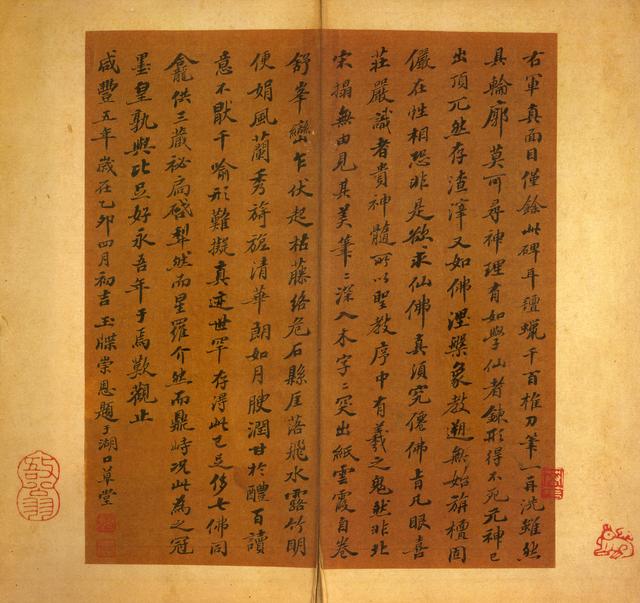 右軍真面目僅餘此碑耳氊蠟千百椎刀筆一再洗雖然
具輪廓莫可尋神理有如學仙者鍊形得不死元神已
出頂兀然存渣滓又如佛涅槃象教遡無始旃檀固
儼在性相恐非是欲求仙佛真須究僊佛旨凡眼喜
莊嚴識者貴神髓所以聖教序中有羲之鬼然非北
宋搨無由見其美筆〻深入木字〻突出紙雲霞自卷
舒峯巒乍伏起枯藤絡危石縣厓落飛水露竹明
便娟風蘭秀旖旎清華朗如月腴潤甘於醴百讀
意不厭千喻形難擬真迹世罕存得此已足侈七佛同
龕供三藏祕扃啟犁然而星羅介然而鼎峙況此為之冠
墨皇孰與比吾好永吾年于焉歎觀止
咸豐五年歲在乙卯四月初吉玉牒崇恩題于湖口草堂